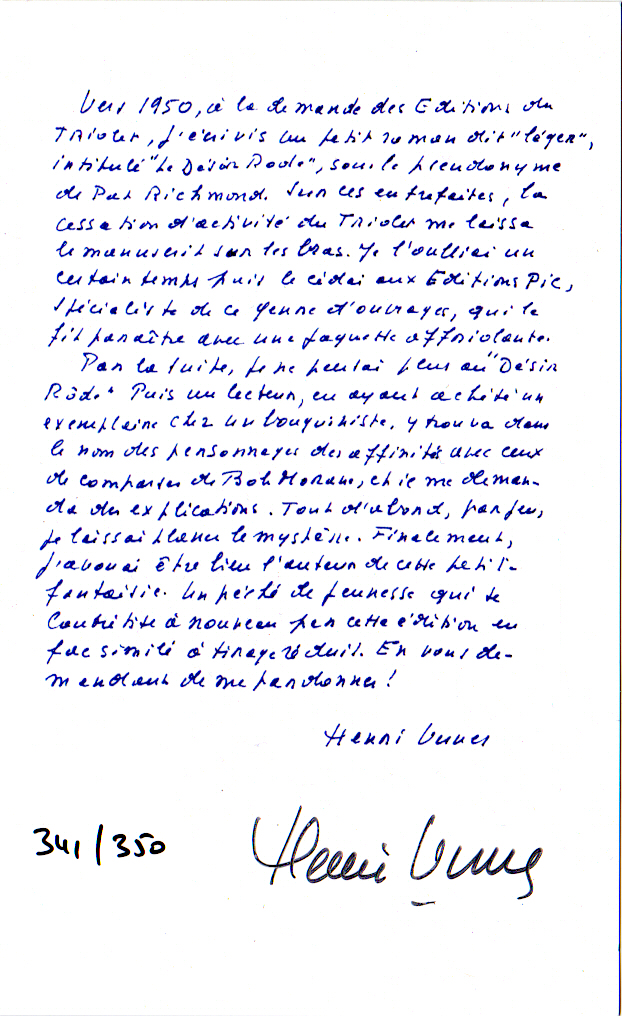 Vers 1950, à la demande des Editions du
Triolet, j'écrivis un petit roman dit "léger",
intitulé "Le Désir Rode", sous le pseudonyme
de Pat Richmond. Sur ces entrefaites, la
cessation d'activité du Triolet me laissa
le manuscrit sur les bras. Je l'oubliai un
certain temps puis le cédai aux Editions Pic,
spécialiste de ce genre d'ouvrages, qui le
fit paraître avec une jaquette affriolante.
Par la suite, je ne pensai plus au "Désir
Rôde" Puis un lecteur, en ayant acheté un
exemplaire chez un bouquiniste, y trouva dans
le nom des personnages des affinités avec ceux
de comparses de Bob Morane, et il me deman-
da des explications. Tout d'abord, par jeu,
je laissai planer le mystère. Finalement,
j'avouai être bien l'auteur de cette petite
fantaisie. Un péché de jeunesse qui se
concrétise à nouveau par cette édition en
fac similé à tirage réduit. En vous de-
mandant de me pardonner !
Henri Vernes
341/350
Henri Vernes